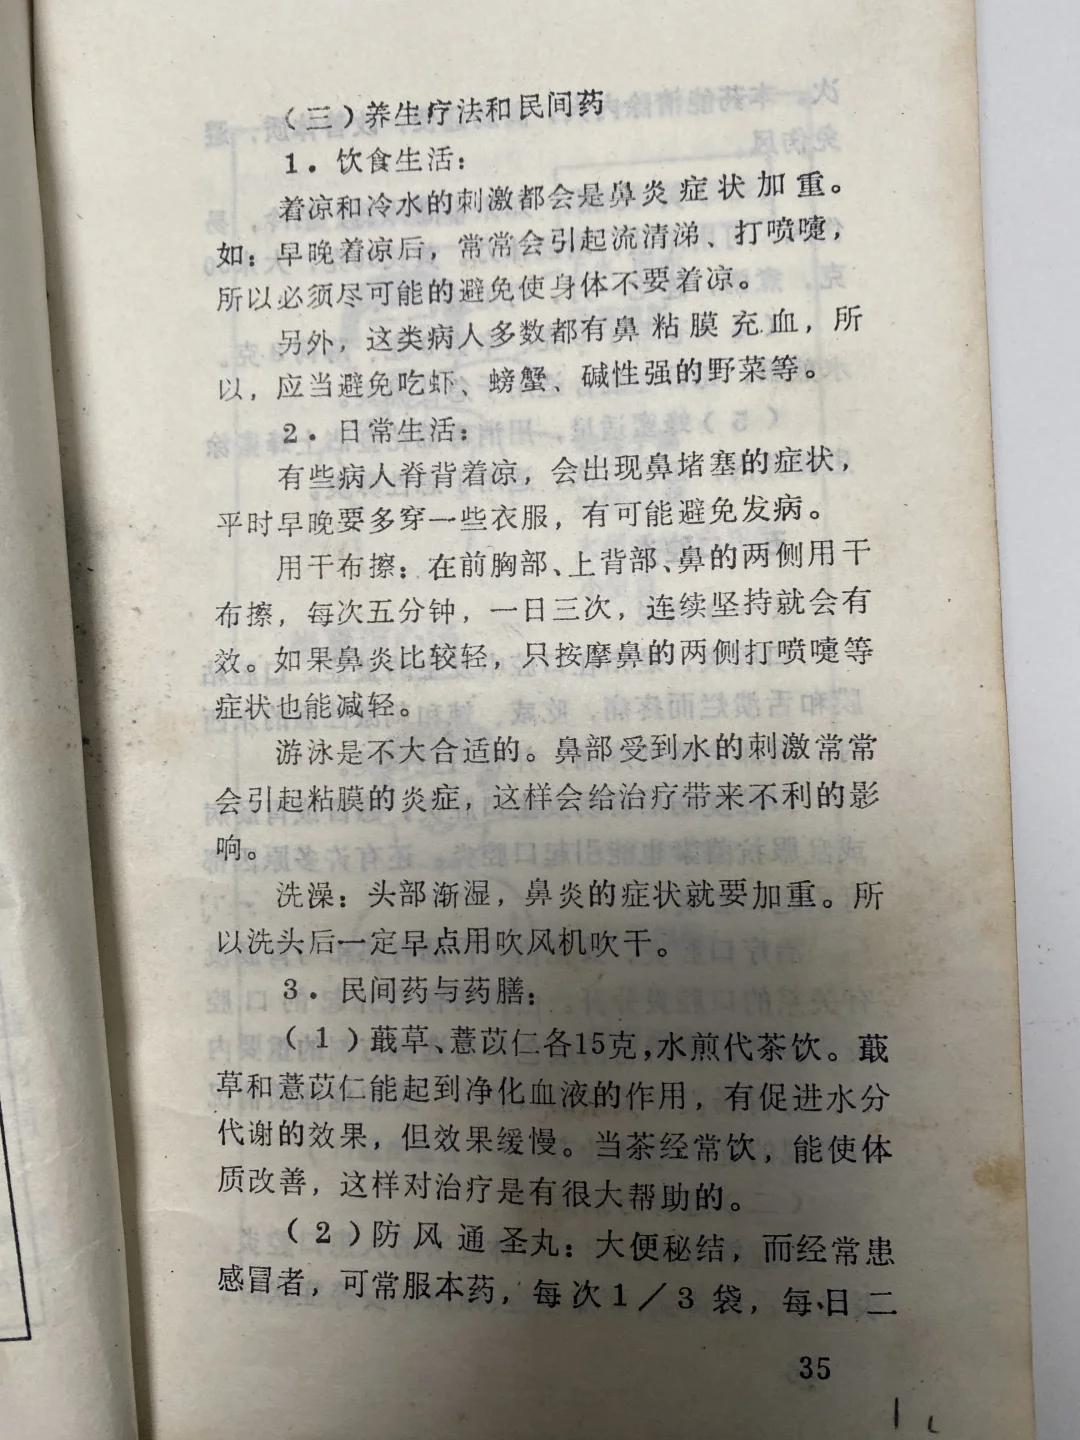 （三）养生疗法和民间药
1．饮食生活：
着凉和冷水的刺激都会是鼻炎症状加重。
如：早晚着凉后，常常会引起流清涕、打喷嚏，
所以必须尽可能的避免使身体不要着凉。
另外，这类病人多数都有鼻粘膜充血，所
以，应当避免吃虾、螃蟹、碱性强的野菜等。
2．日常生活：
有些病人脊背着凉，会出现鼻堵塞的症状，
平时早晚要多穿一些衣服，有可能避免发病。
用干布擦：在前胸部、上背部、鼻的两侧用干
布擦，每次五分钟，一日三次，连续坚持就会有
效。如果鼻炎比较轻，只按摩鼻的两侧打喷嚏等
症状也能减轻。
游泳是不大合适的。鼻部受到水的刺激常常
会引起粘膜的炎症，这样会给治疗带来不利的影
响。
洗澡：头部渐湿，鼻炎的症状就要加重。所
以洗头后一定早点用吹风机吹干。
3．民间药与药膳：
（1）蕺草、薏苡仁各15克，水煎代茶饮。蕺
草和薏苡仁能起到净化血液的作用，有促进水分
代谢的效果，但效果缓慢。当茶经常饮，能使体
质改善，这样对治疗是有很大帮助的。
（2）防风通圣丸：大便秘结，而经常患
感冒者，可常服本药，每次1／3袋，每日二
35